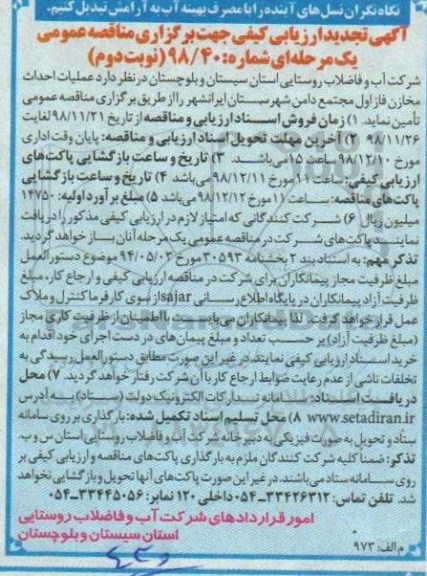 نگاه نگران نسل های آینده را با مصرف بهینه آب به آرامش تبدیل کنیم.
آگهی تجدید ارزیابی کیفی جهت برگزاری مناقصه عمومی
یک مرحله ای شماره: ۹۸/۴۰ (نوبت دوم)
شرکت آب و فاضلاب روستایی استان سیستان و بلوچستان در نظر دارد عملیات احداث
مخازن فاز اول مجتمع دامن شهرستان ایرانشهر را از طریق برگزاری مناقصه عمومی
تأمین نماید. ۱) زمان فروش اسناد ارزیابی و مناقصه از تاریخ ۹۸/۱۱/۲۱ لغایت
۹۸/۱۱/۲۶ ۲) آخرین مهلت تحویل اسناد ارزیابی و مناقصه: پایان وقت اداری
مورخ ۹۸/۱۲/۱۰ ساعت ۱۵ می باشد. ۳) تاریخ و ساعت بازگشایی پاکت های
ارزیابی کیفی: ساعت ۱۰ مورخ ۹۸/۱۲/۱۱ می باشد ۴) تاریخ و ساعت بازگشایی
پاکت های مناقصه: ساعت ۱۱ مورخ ۹۸/۱۲/۱۲ می باشد ۵) مبلغ برآورد اولیه: ۱۴۷۵۰
میلیون ریال ۶) شرکت کنندگانی که امتیاز لازم در ارزیابی کیفی مذکور را دریافت
نمایند پاکت های شرکت در مناقصه عمومی یک مرحله آنان باز خواهد گردید.
تذکر مهم: به استناد بند ۲ بخشنامه ۳۰۵۹۳ مورخ ۹۴/۰۵/۰۳ موضوع دستورالعمل
مبلغ ظرفیت مجاز پیمانکاران برای شرکت در مناقصه ارزیابی کیفی و ارجاع کار، مبلغ
ظرفیت آزاد پیمانکاران در پایگاه اطلاع رسانی sajar از سوی کارفرما کنترل و ملاک
عمل قرار خواهد گرفت. لذا پیمانکاران می بایست با اطمینان از ظرفیت کاری مجاز
(مبلغ ظرفیت آزاد) بر حسب تعداد و مبلغ پیمان های در دست اجرای خود اقدام به
خرید اسناد ارزیابی کیفی نمایند در غیر این صورت مطابق دستورالعمل رسیدگی به
تخلفات ناشی از عدم رعایت ضوابط ارجاع کار با آن شرکت رفتار خواهد گردید. ۷) محل
دریافت اسناد: سامانه تدارکات الکترونیک دولت (ستاد) به آدرس
www.setadiran.ir ۸) محل تسلیم اسناد تکمیل شده: بارگذاری بر روی سامانه
ستاد و تحویل به صورت فیزیکی به دبیرخانه شرکت آب و فاضلاب روستایی استان س و ب.
تذکر: ضمناً کلیه شرکت کنندگان ملزم به بارگذاری پاکت های مناقصه و ارزیابی کیفی بر
روی سامانه ستاد می باشند. در غیر این صورت پاکت های آنها تحویل و بازگشایی نخواهد
شد. تلفن تماس: ۳۳۴۲۶۳۱۲-۰۵۴ داخلی ۱۲۰ نمابر: ۳۳۴۴۵۰۵۶-۰۵۴
امور قراردادهای شرکت آب و فاضلاب روستایی
استان سیستان و بلوچستان
م الف: ۹۷۳